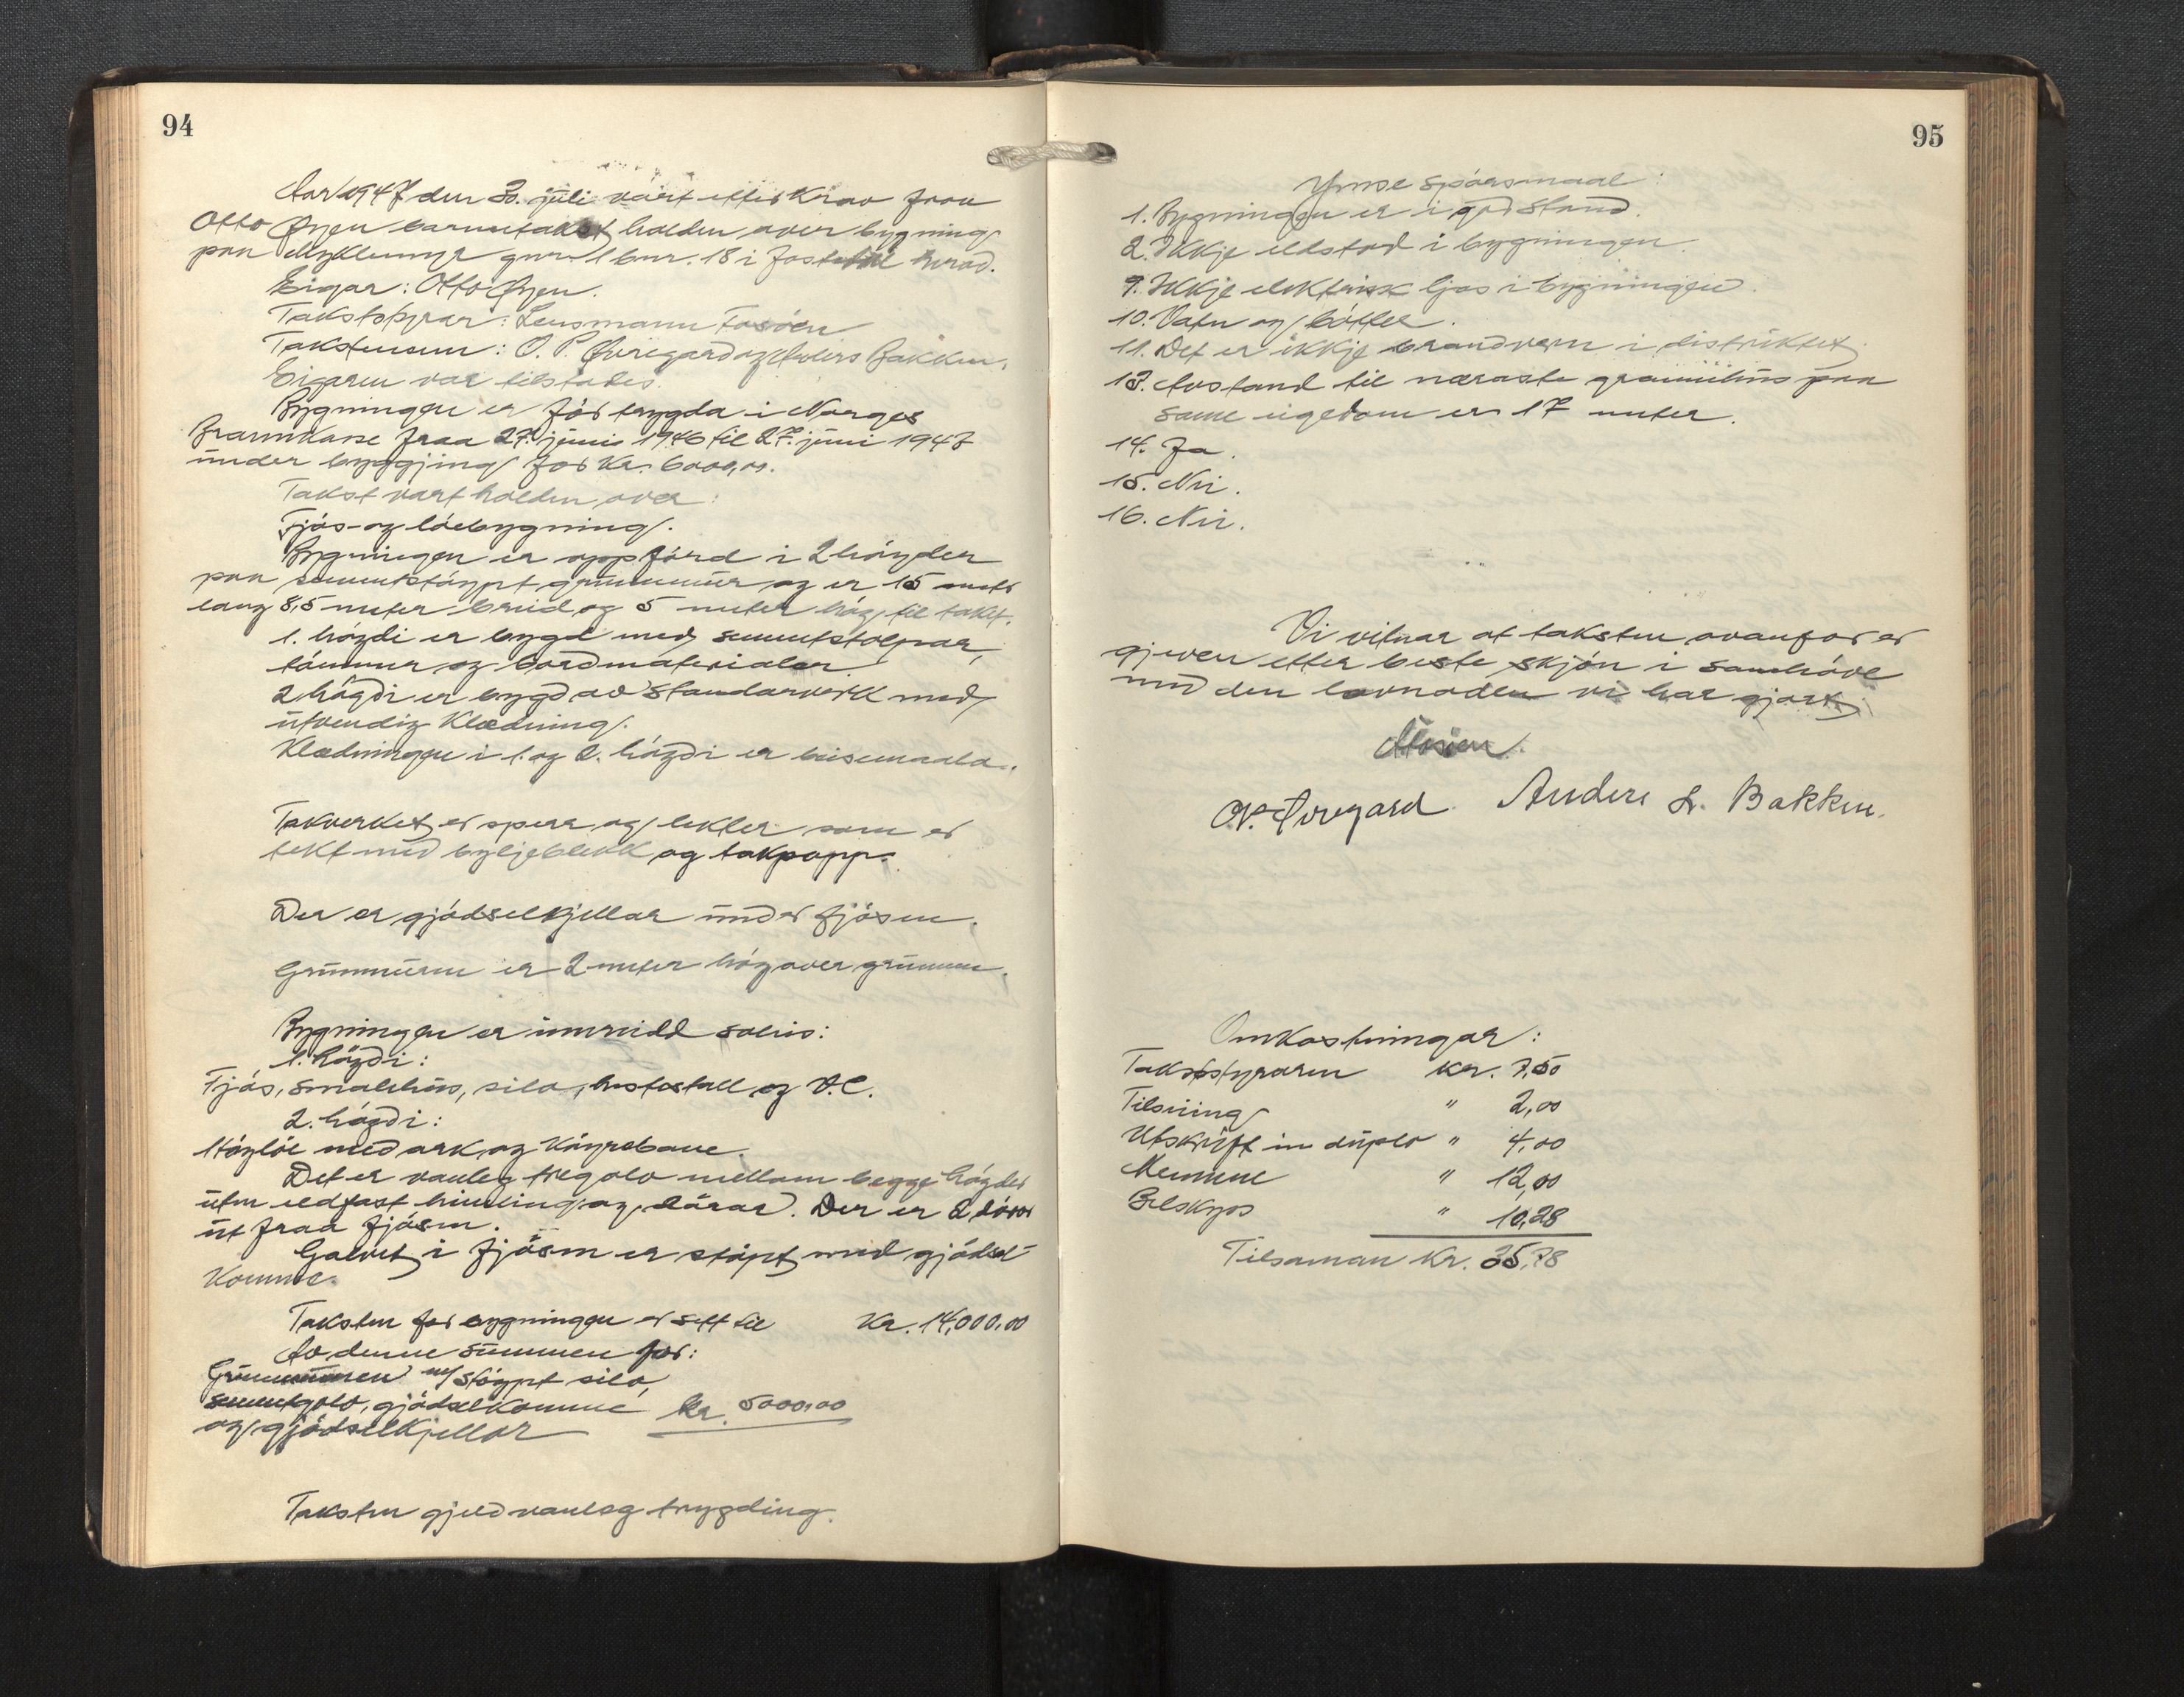 94
Aar 1947 den 30. juli vart etter krav fraa
Otto Øyen branntakst holden over bygning
paa Myklemyr gnr. 1 bnr. 18 i Jostedal herad.
Eigar: Otto Øyen.
Takststyrar: Lensmann Fosøen
Takstmenn: O. P. Øvregard og Anders Bakken.
Eigaren var tilstades.
Bygningen er før trygda i Norges
Brannkasse fraa 27. juni 1946 til 27. juni 1947
under byggjing for kr. 6000,00.
Takst vart holden over:
Fjøs- og løebygning.
Bygningen er oppførd i 2 høgder
paa sementstøypt grunnmur og er 15 meter
lang 8,5 meter breid og 5 meter høg til taket.
1. høgdi er bygd med sementstolpar,
tømmer og bordmaterialar.
2. høgdi er bygd av standarverk med
utvendig klædning.
Klædningen i 1. og 2. høgdi er beisemaala.
Takverket er sperr og lekter som er
tekt med bylgjeblekk og takpapp.
Der er gjødselkjellar under fjøsen.
Grunnmuren er 2 meter høg over grunnen.
Bygningen er innreidd soleis:
1. høgdi:
Fjøs, smalehus, silo, hestestall og V.C.
2. høgdi:
Høyløe med ark og køyrebane.
Det er vanleg tregolv mellom begge høgder
uten eldfast himling og dørar. Der er 2 dører
ut fraa fjøsen.
Golvet i fjøsen er støpt med gjødsel-
komme.
Taksten for bygningen er sett til Kr. 14,000.00
Av denne summen for:
Grunnmuren m/ støypt silo,
sementgolv, gjødselkomme kr. 5000,00
og gjødselkjellar
Taksten gjeld vanleg trygding.
95
Ymse spørsmaal:
1. Bygningen er i god stand.
2. Ikkje eldstad i bygningen.
9. Ikkje elektrisk ljos i bygningen.
10. Vatn og bøtter.
11. Det er ikkje brandvern i distriktet.
13. Avstand til næraste grannehus paa
same eigedom er 17 meter.
14. Ja.
15. Nei.
16. Nei.
Vi vitnar at taksten ovanfor er
gjeven etter beste skjøn i samhøve
med den lovnaden vi har gjort.
Fosøen.
O.P. Øvregard. Anders L. Bakken.
Omkostningar:
Takststyraren kr. 7,50
Tilsiing " 2,00
Utskrift in duplo " 4,00
Mennene " 12,00
Bilskyss " 10,28
Tilsaman kr. 35,78